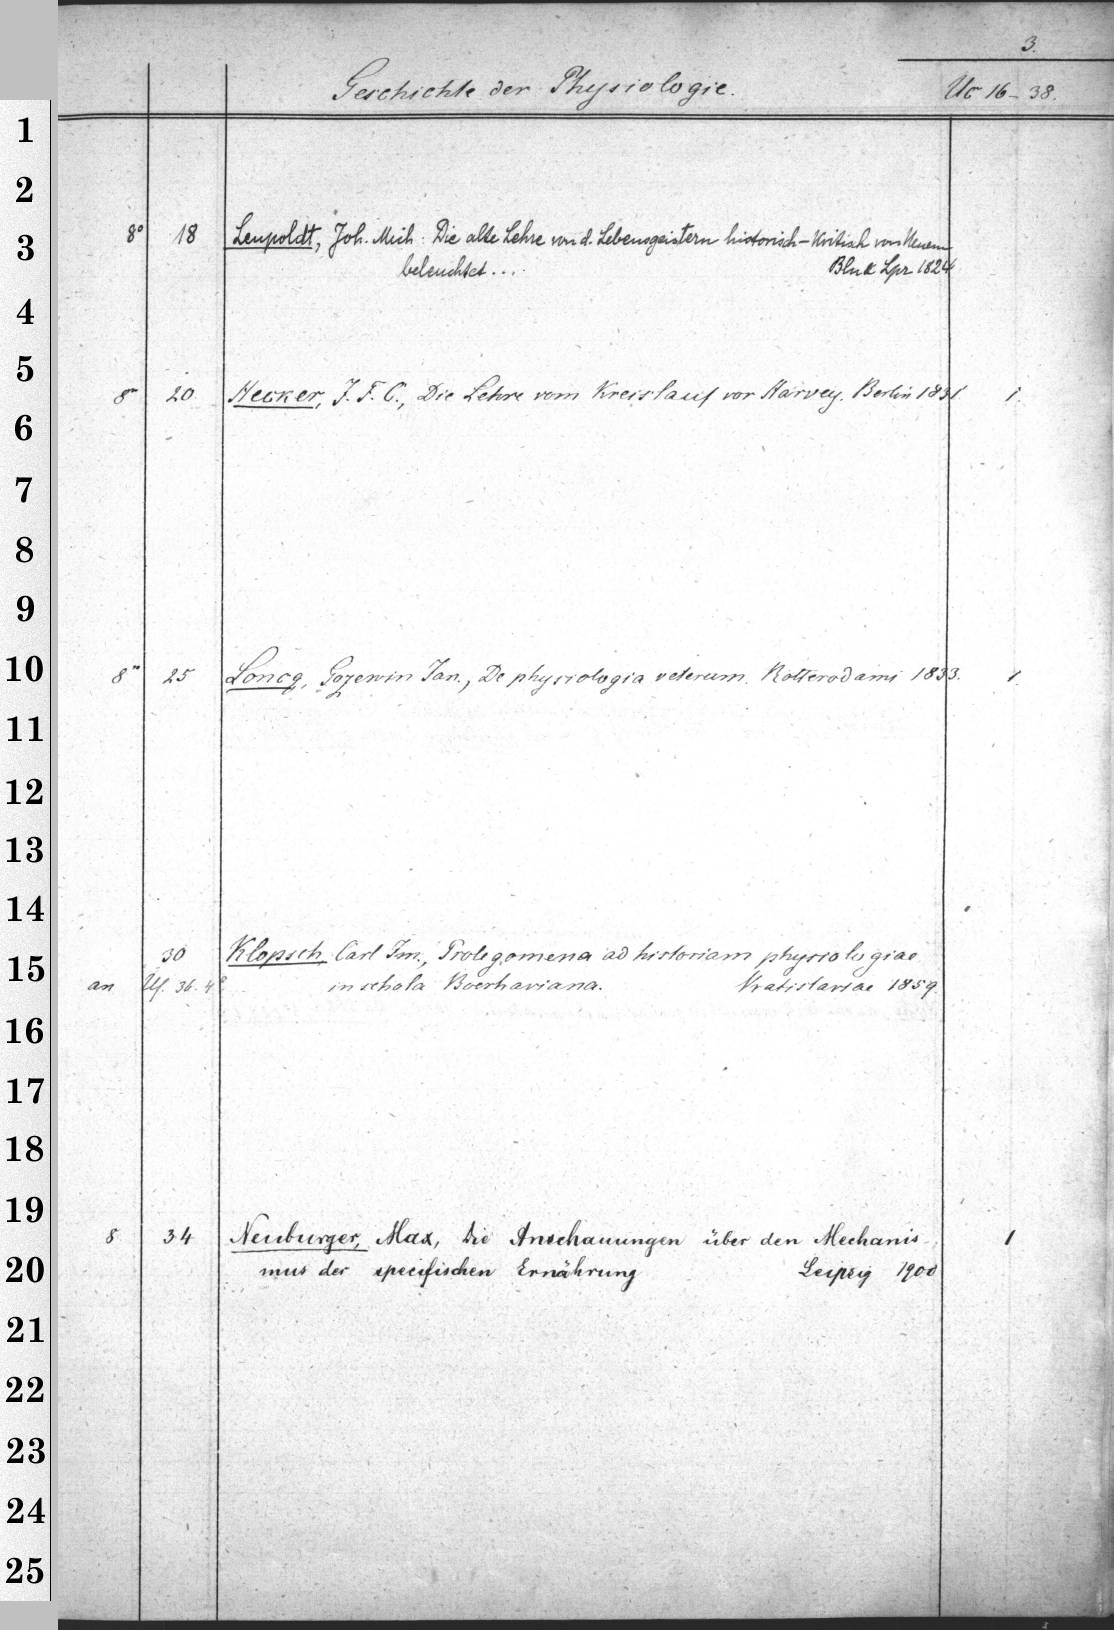 3.
Geschichte der Physiologie. Uc 16-38.
1
2
3
4
5
6
7
8
9
10
11
12
13
14
15
16
17
18
19
20
21
22
23
24
25
8° 18 Leupoldt, Joh. Mich: Die alte Lehre von d. Lebensgeistern historisch-kritisch von Neuem
beleuchtet... Bln & Lpz 1824
8° 20 Hecker, J. F. C., Die Lehre vom Kreislauf vor Harvey. Berlin 1831 1.
8° 25 Loncq, Gozewin Jan., De physiologia veterum. Rotterodami 1833. 1.
30 Klopsch, Carl Im., Prolegomena ad historiam physiologiae
an Uf. 36. 4° in schola Boerhaviana. Vratislaviae 1859.
8 34 Neuburger, Max, Die Anschauungen über den Mechanis-
mus der specifischen Ernährung Leipzig 1900 1